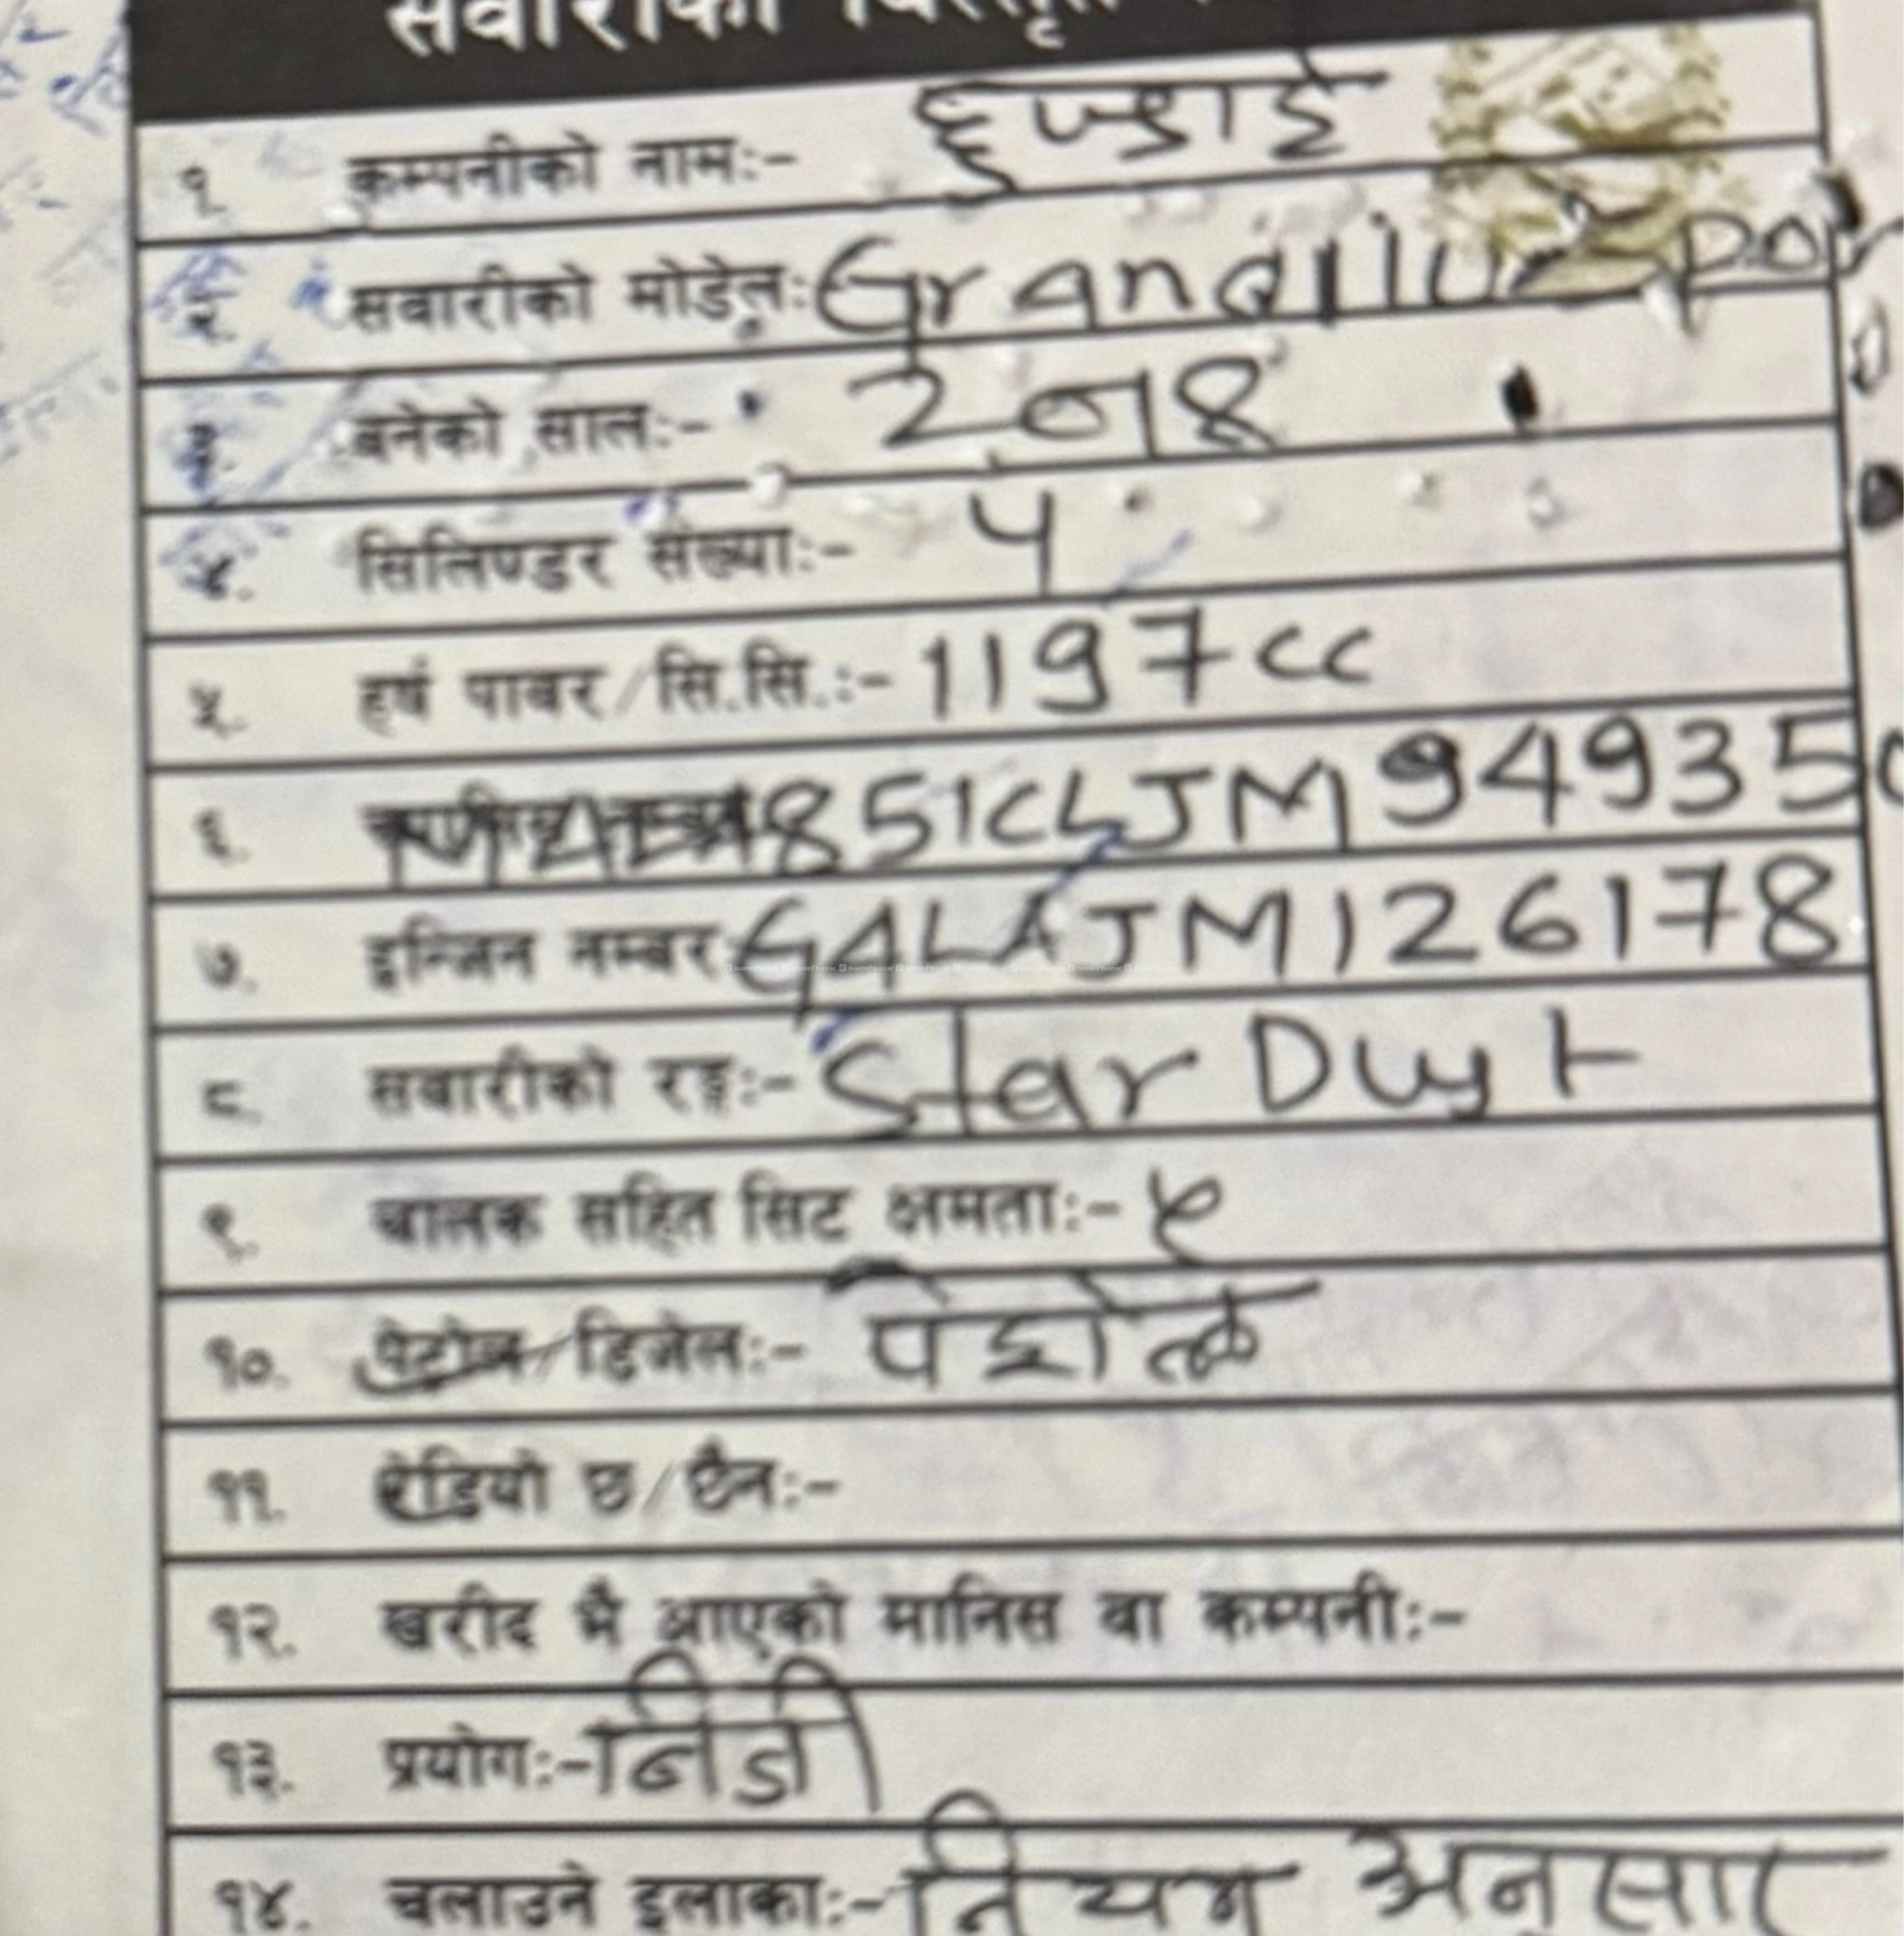 सवारीको विस्तृत
१ कम्पनीको नामः- हुण्डाई
२. सवारीको मोडेलः Grand i10
३. बनेको सालः- 2018
४. सिलिण्डर संख्याः- 4
५. हर्ष पावर/सि.सि.:- 1197cc
६. 851CLJM949350
७. इन्जिन नम्बर: G4LAJM126178
८. सवारीको रङ्गः- Star Dust
९. चालक सहित सिट क्षमताः- ५
१०. पेट्रोल/डिजेलः- पेट्रोल
११. रेडियो छ/छैनः-
१२. खरीद भै आएको मानिस वा कम्पनीः-
१३. प्रयोगः- निजी
१४. चलाउने इलाकाः- नियम अनुसार